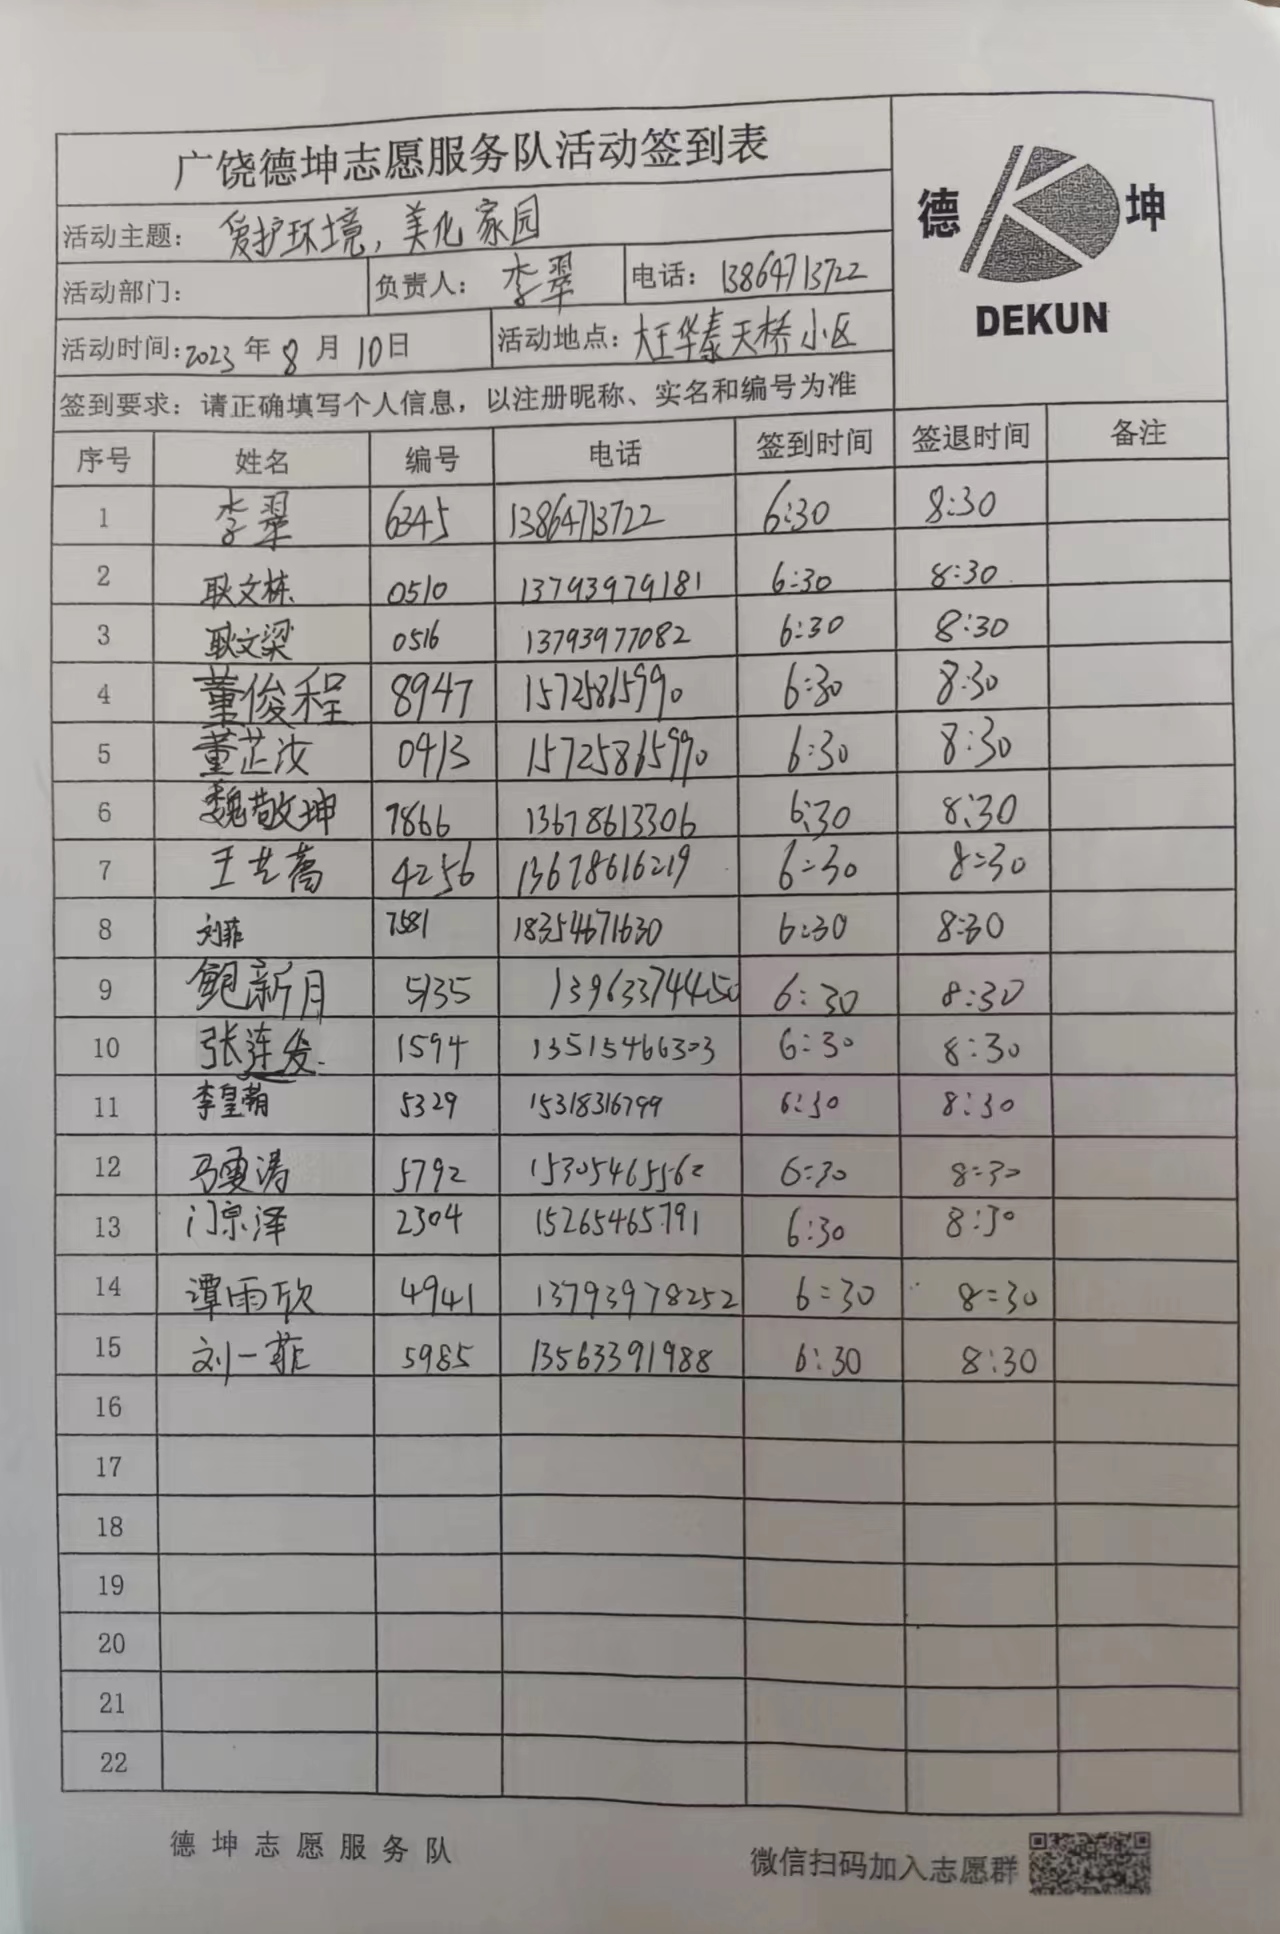 广饶德坤志愿服务队活动签到表
德 坤
DEKUN
活动主题: 爱护环境,美化家园
活动部门: 负责人: 李翠 电话: 13864713722
活动时间: 2023 年 8 月 10 日 活动地点: 大王华泰天桥小区
签到要求: 请正确填写个人信息, 以注册昵称、实名和编号为准
序号 姓名 编号 电话 签到时间 签退时间 备注
1 李翠 6345 13864713722 6:30 8:30
2 耿文栋 0510 13793979181 6:30 8:30
3 耿文梁 0516 13793977082 6:30 8:30
4 董俊程 8947 15725865990 6:30 8:30
5 董芷汝 0413 15725865990 6:30 8:30
6 魏敬坤 7866 13678613306 6:30 8:30
7 王艺蒿 4256 13678616219 6:30 8:30
8 刘菲 7581 18354671630 6:30 8:30
9 鲍新月 5135 13963374450 6:30 8:30
10 张连发 1594 13515466303 6:30 8:30
11 李皇 5329 15318316799 6:30 8:30
12 马雯涛 5792 15305465562 6:30 8:30
13 门京泽 2304 15265465791 6:30 8:30
14 谭雨欣 4941 13793978252 6:30 8:30
15 刘一菲 5985 13563391988 6:30 8:30
16
17
18
19
20
21
22
德坤志愿服务队 微信扫码加入志愿群